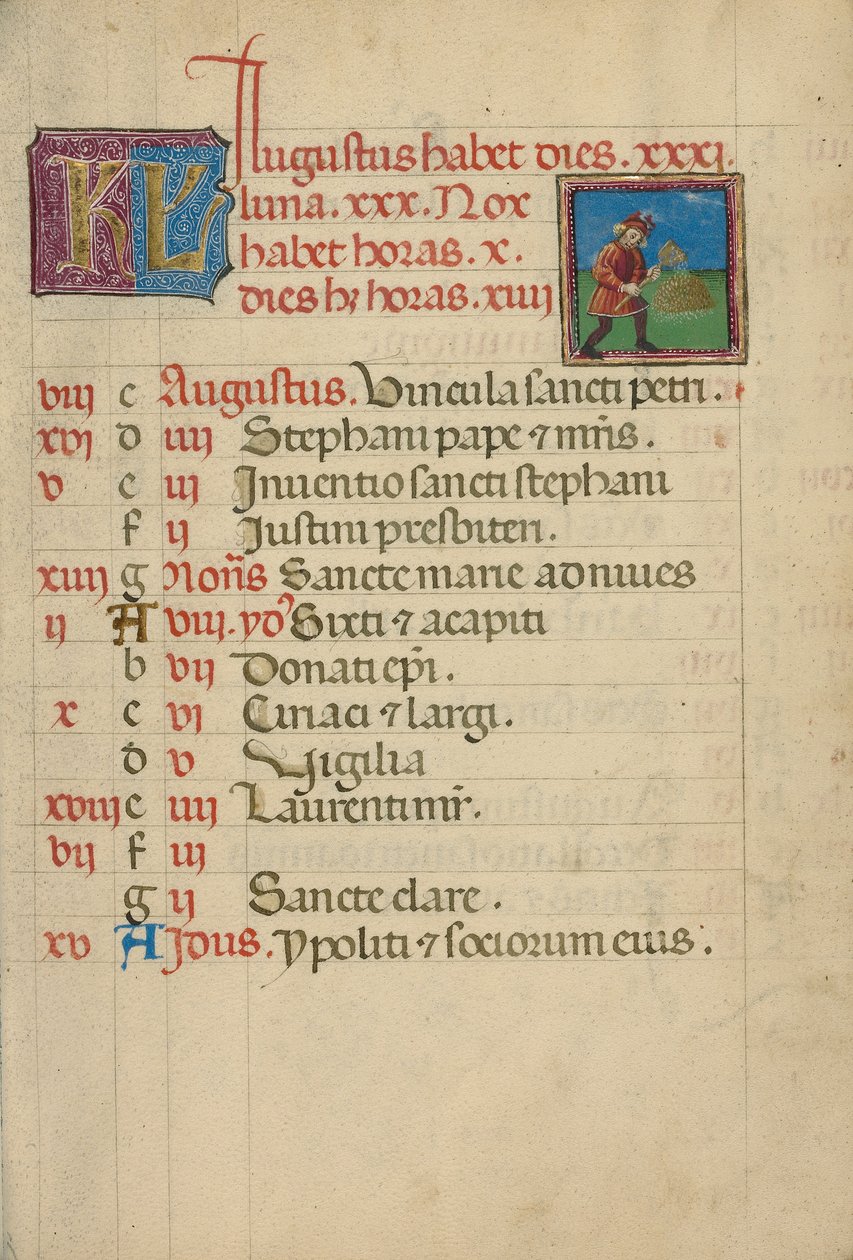 KL Augustus habet dies. xxxi.
luna. xxx. Nox
habet horas. x.
dies hꝫ horas. xiiij
viij c Augustus. Vincula sancti petri.
xvj d iiij Stephani pape ⁊ mr̃is.
v e iij Inuentio sancti stephani
f ij Iustini presbiteri.
xiiij g Noñs Sancte marie ad niues
ij A viij. yd9 Sixti ⁊ acapiti
b vij Donati ep̃i.
x c vj Ciriaci ⁊ largi.
d v Vigilia
xviij e iiij Laurenti mr̃.
vij f iij
g ij Sancte clare.
xv A Idus. ypoliti ⁊ sociorum eius.